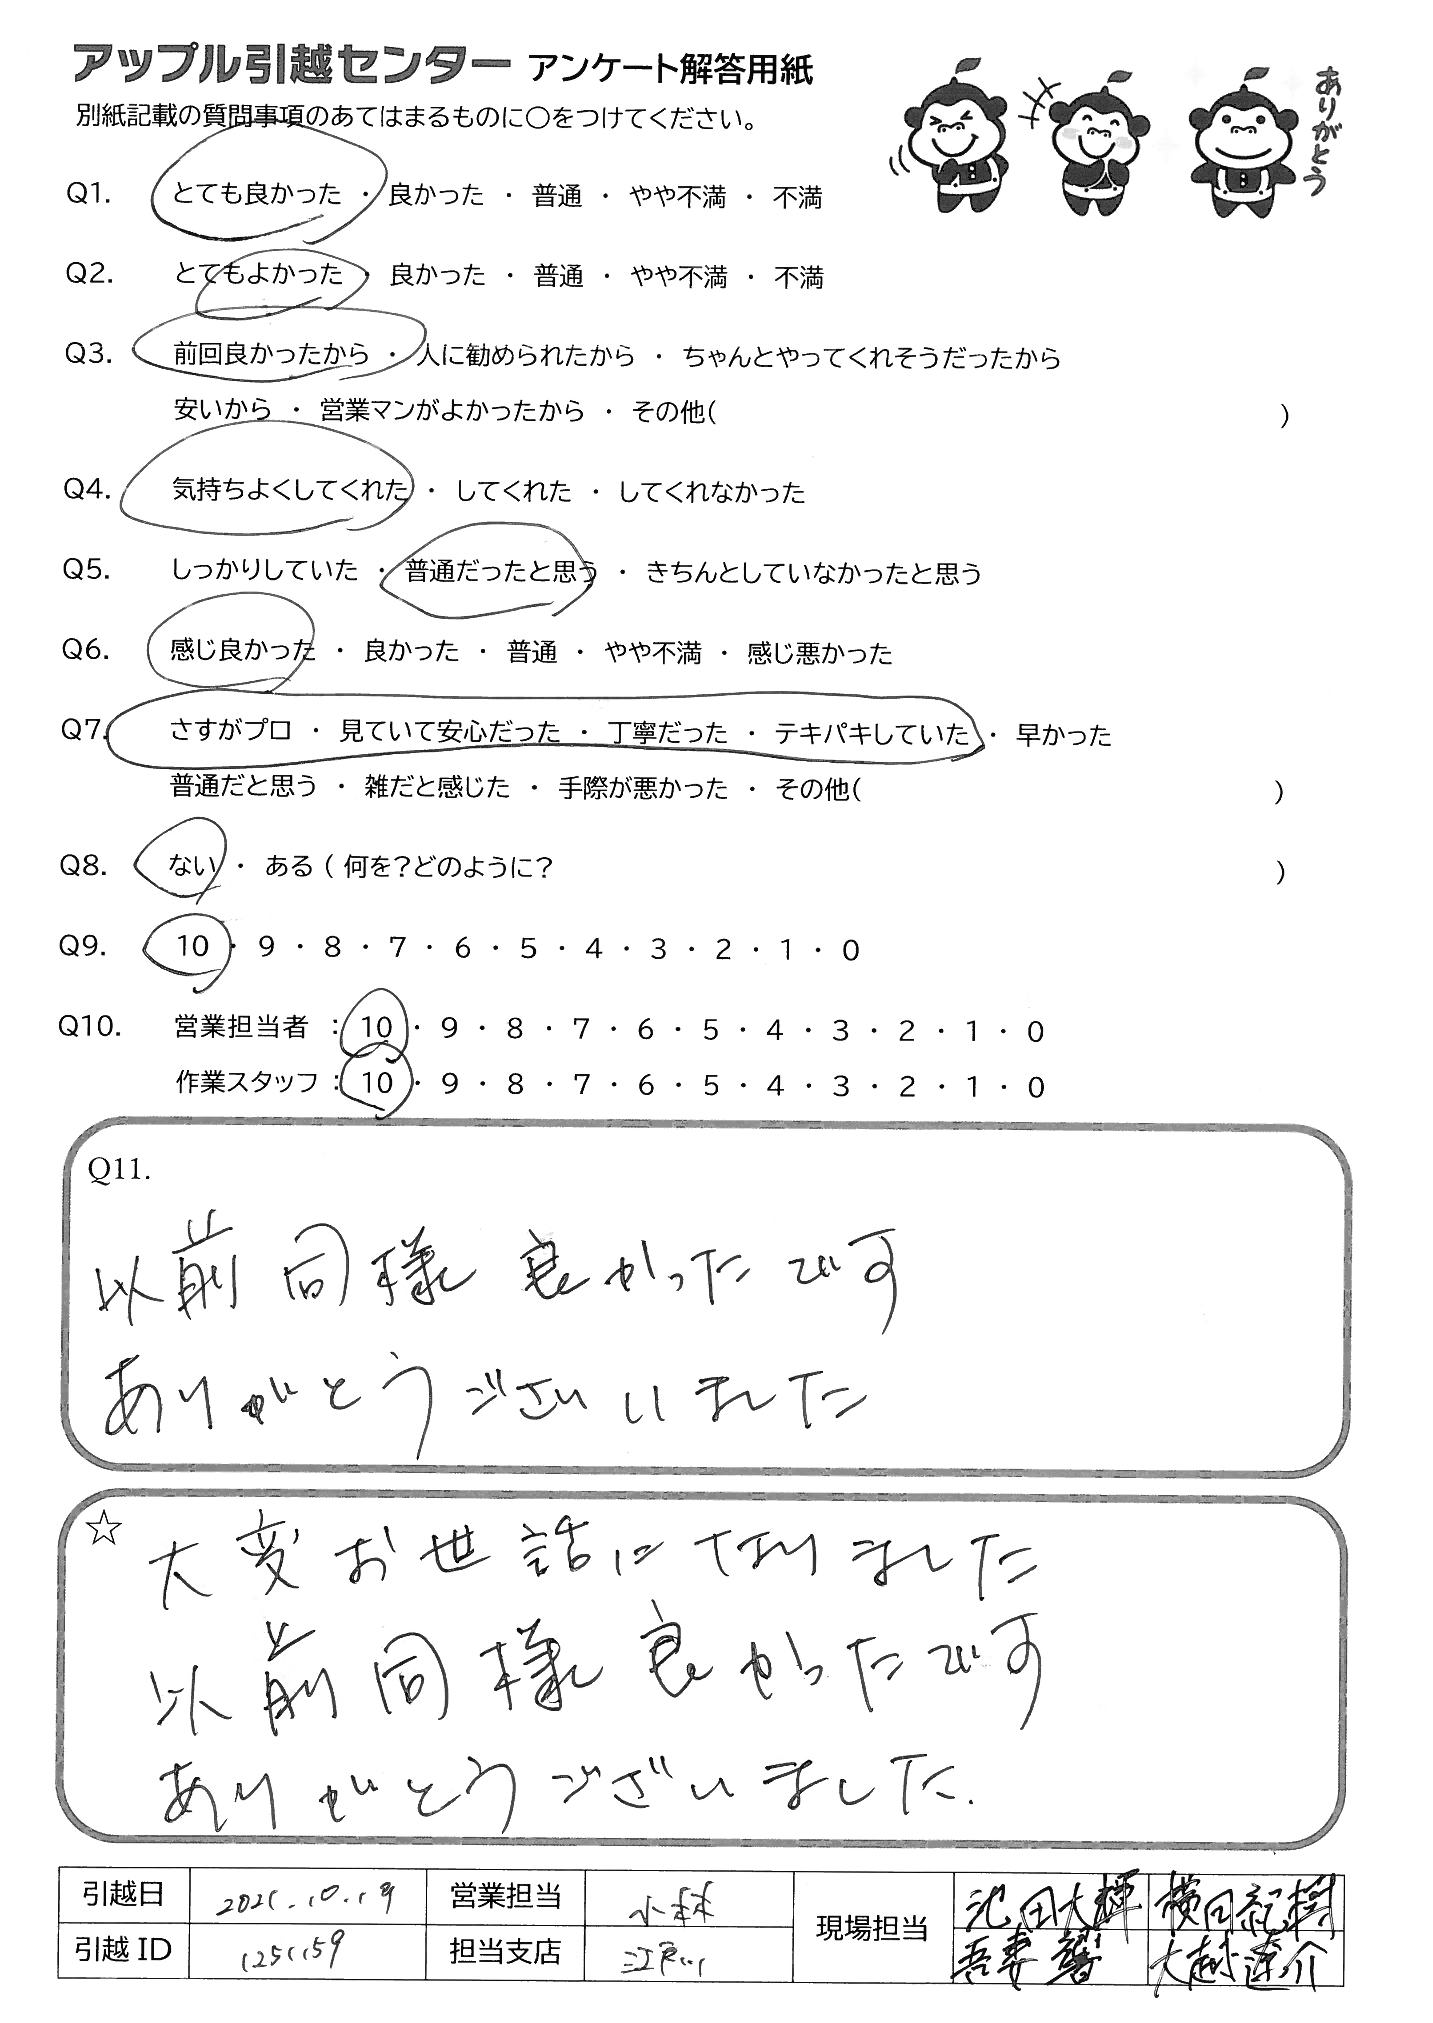 アップル引越センター アンケート解答用紙
別紙記載の質問事項のあてはまるものに○をつけてください。
ありがとう
Q1. とても良かった ・ 良かった ・ 普通 ・ やや不満 ・ 不満
Q2. とてもよかった ・ 良かった ・ 普通 ・ やや不満 ・ 不満
Q3. 前回良かったから ・ 人に勧められたから ・ ちゃんとやってくれそうだったから
安いから ・ 営業マンがよかったから ・ その他( )
Q4. 気持ちよくしてくれた ・ してくれた ・ してくれなかった
Q5. しっかりしていた ・ 普通だったと思う ・ きちんとしていなかったと思う
Q6. 感じ良かった ・ 良かった ・ 普通 ・ やや不満 ・ 感じ悪かった
Q7. さすがプロ ・ 見ていて安心だった ・ 丁寧だった ・ テキパキしていた ・ 早かった
普通だと思う ・ 雑だと感じた ・ 手際が悪かった ・ その他( )
Q8. ない ・ ある ( 何を?どのように? )
Q9. 10 ・ 9 ・ 8 ・ 7 ・ 6 ・ 5 ・ 4 ・ 3 ・ 2 ・ 1 ・ 0
Q10. 営業担当者 : 10 ・ 9 ・ 8 ・ 7 ・ 6 ・ 5 ・ 4 ・ 3 ・ 2 ・ 1 ・ 0
作業スタッフ : 10 ・ 9 ・ 8 ・ 7 ・ 6 ・ 5 ・ 4 ・ 3 ・ 2 ・ 1 ・ 0
Q11.
以前同様良かったです
ありがとうございいました
☆ 大変お世話になりました
以前同様良かったです
ありがとうございました.
引越日 2025.10.19 営業担当 小林 現場担当 池田大輝 横田紀樹
引越ID 1251159 担当支店 江戸川 吾妻響 大越遼介